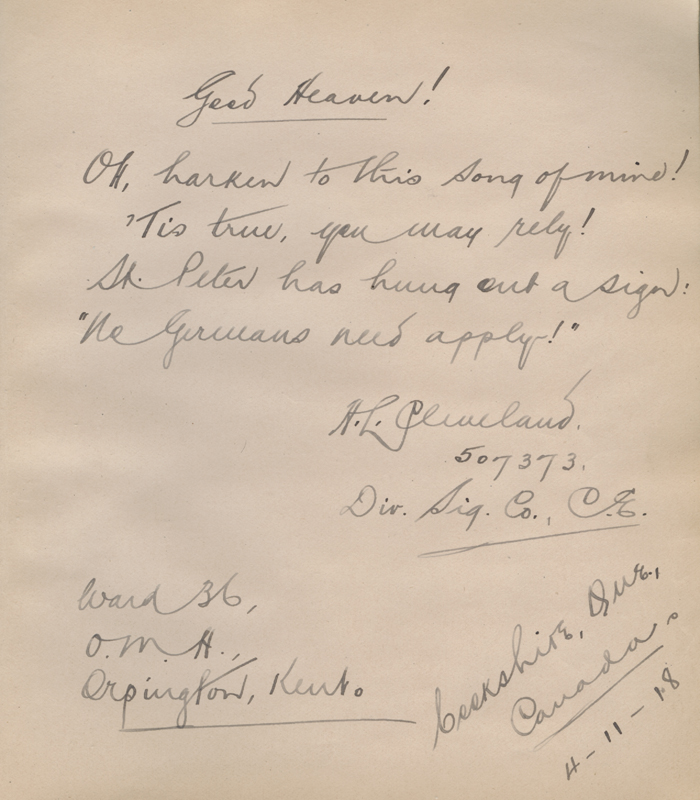 Good Heaven!
Oh, harken to this song of mine!
'Tis true, you may rely!
St. Peter has hung out a sign:
"No Germans need apply!"
H.L. Cleveland.
507373.
Div. Sig. Co., C.E.
Ward 36,
O.M.H.,
Orpington, Kent.
Cookshire, Que.,
Canada.
4-11-18